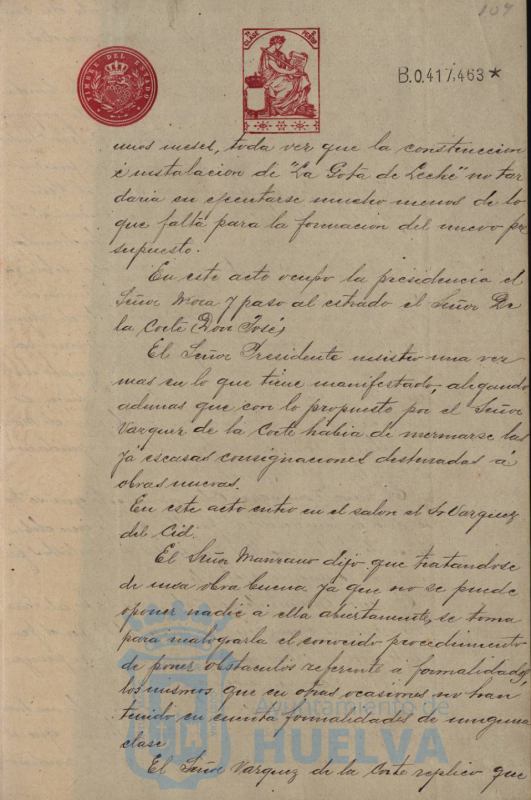 107
TIMBRE DEL ESTADO
B.0.417,463*
mos meses, toda vez que la construccion
é instalacion de "La Gota de Leche" no tar
daria en ejecutarse mucho menos de lo
que falta para la formacion del nuevo pre
supuesto.
En este acto ocupo la presidencia el
Señor Mora y paso al estrado el Señor De
la Corte (Don José)
El Señor Presidente insistio una vez
mas en lo que tiene manifestado, alegando
ademas que con lo propuesto por el Señor
Vazquez de la Corte habia de mermarse las
ya escasas consignaciones destinadas á
obras nuevas.
En este acto entro en el salon el Sr Vazquez
del Cid.
El Señor Manzano dijo que tratandose
de una obra buena ya que no se puede
oponer nadie á ella abiertamente, se toma
para malograrla el conocido procedimiento
de poner obstaculos referente á formalidades,
los mismos que en otras ocasiones no han
tenido en cuenta formalidades de ninguna
clase
El Señor Vazquez de la Corte replico que
Ayuntamiento de
HUELVA